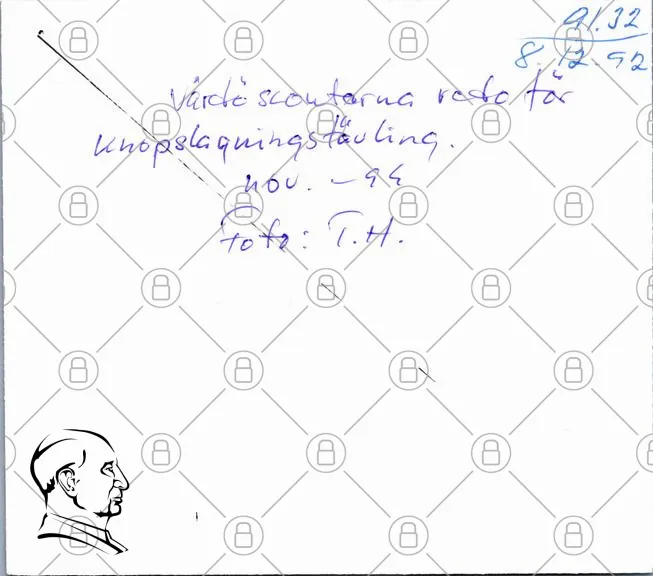 91.32
8.12.92
Vårdöscouterna redo för
knopslagningstävling.
nov. -94
Foto: T.H.